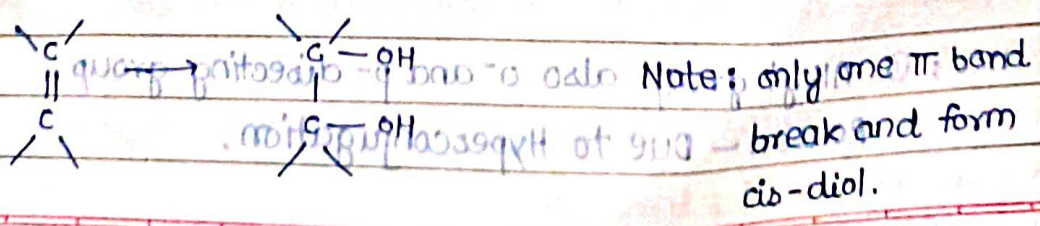 C — OH
C — OH
C
||
C
Note: only one π bond
break and form
cis-diol.